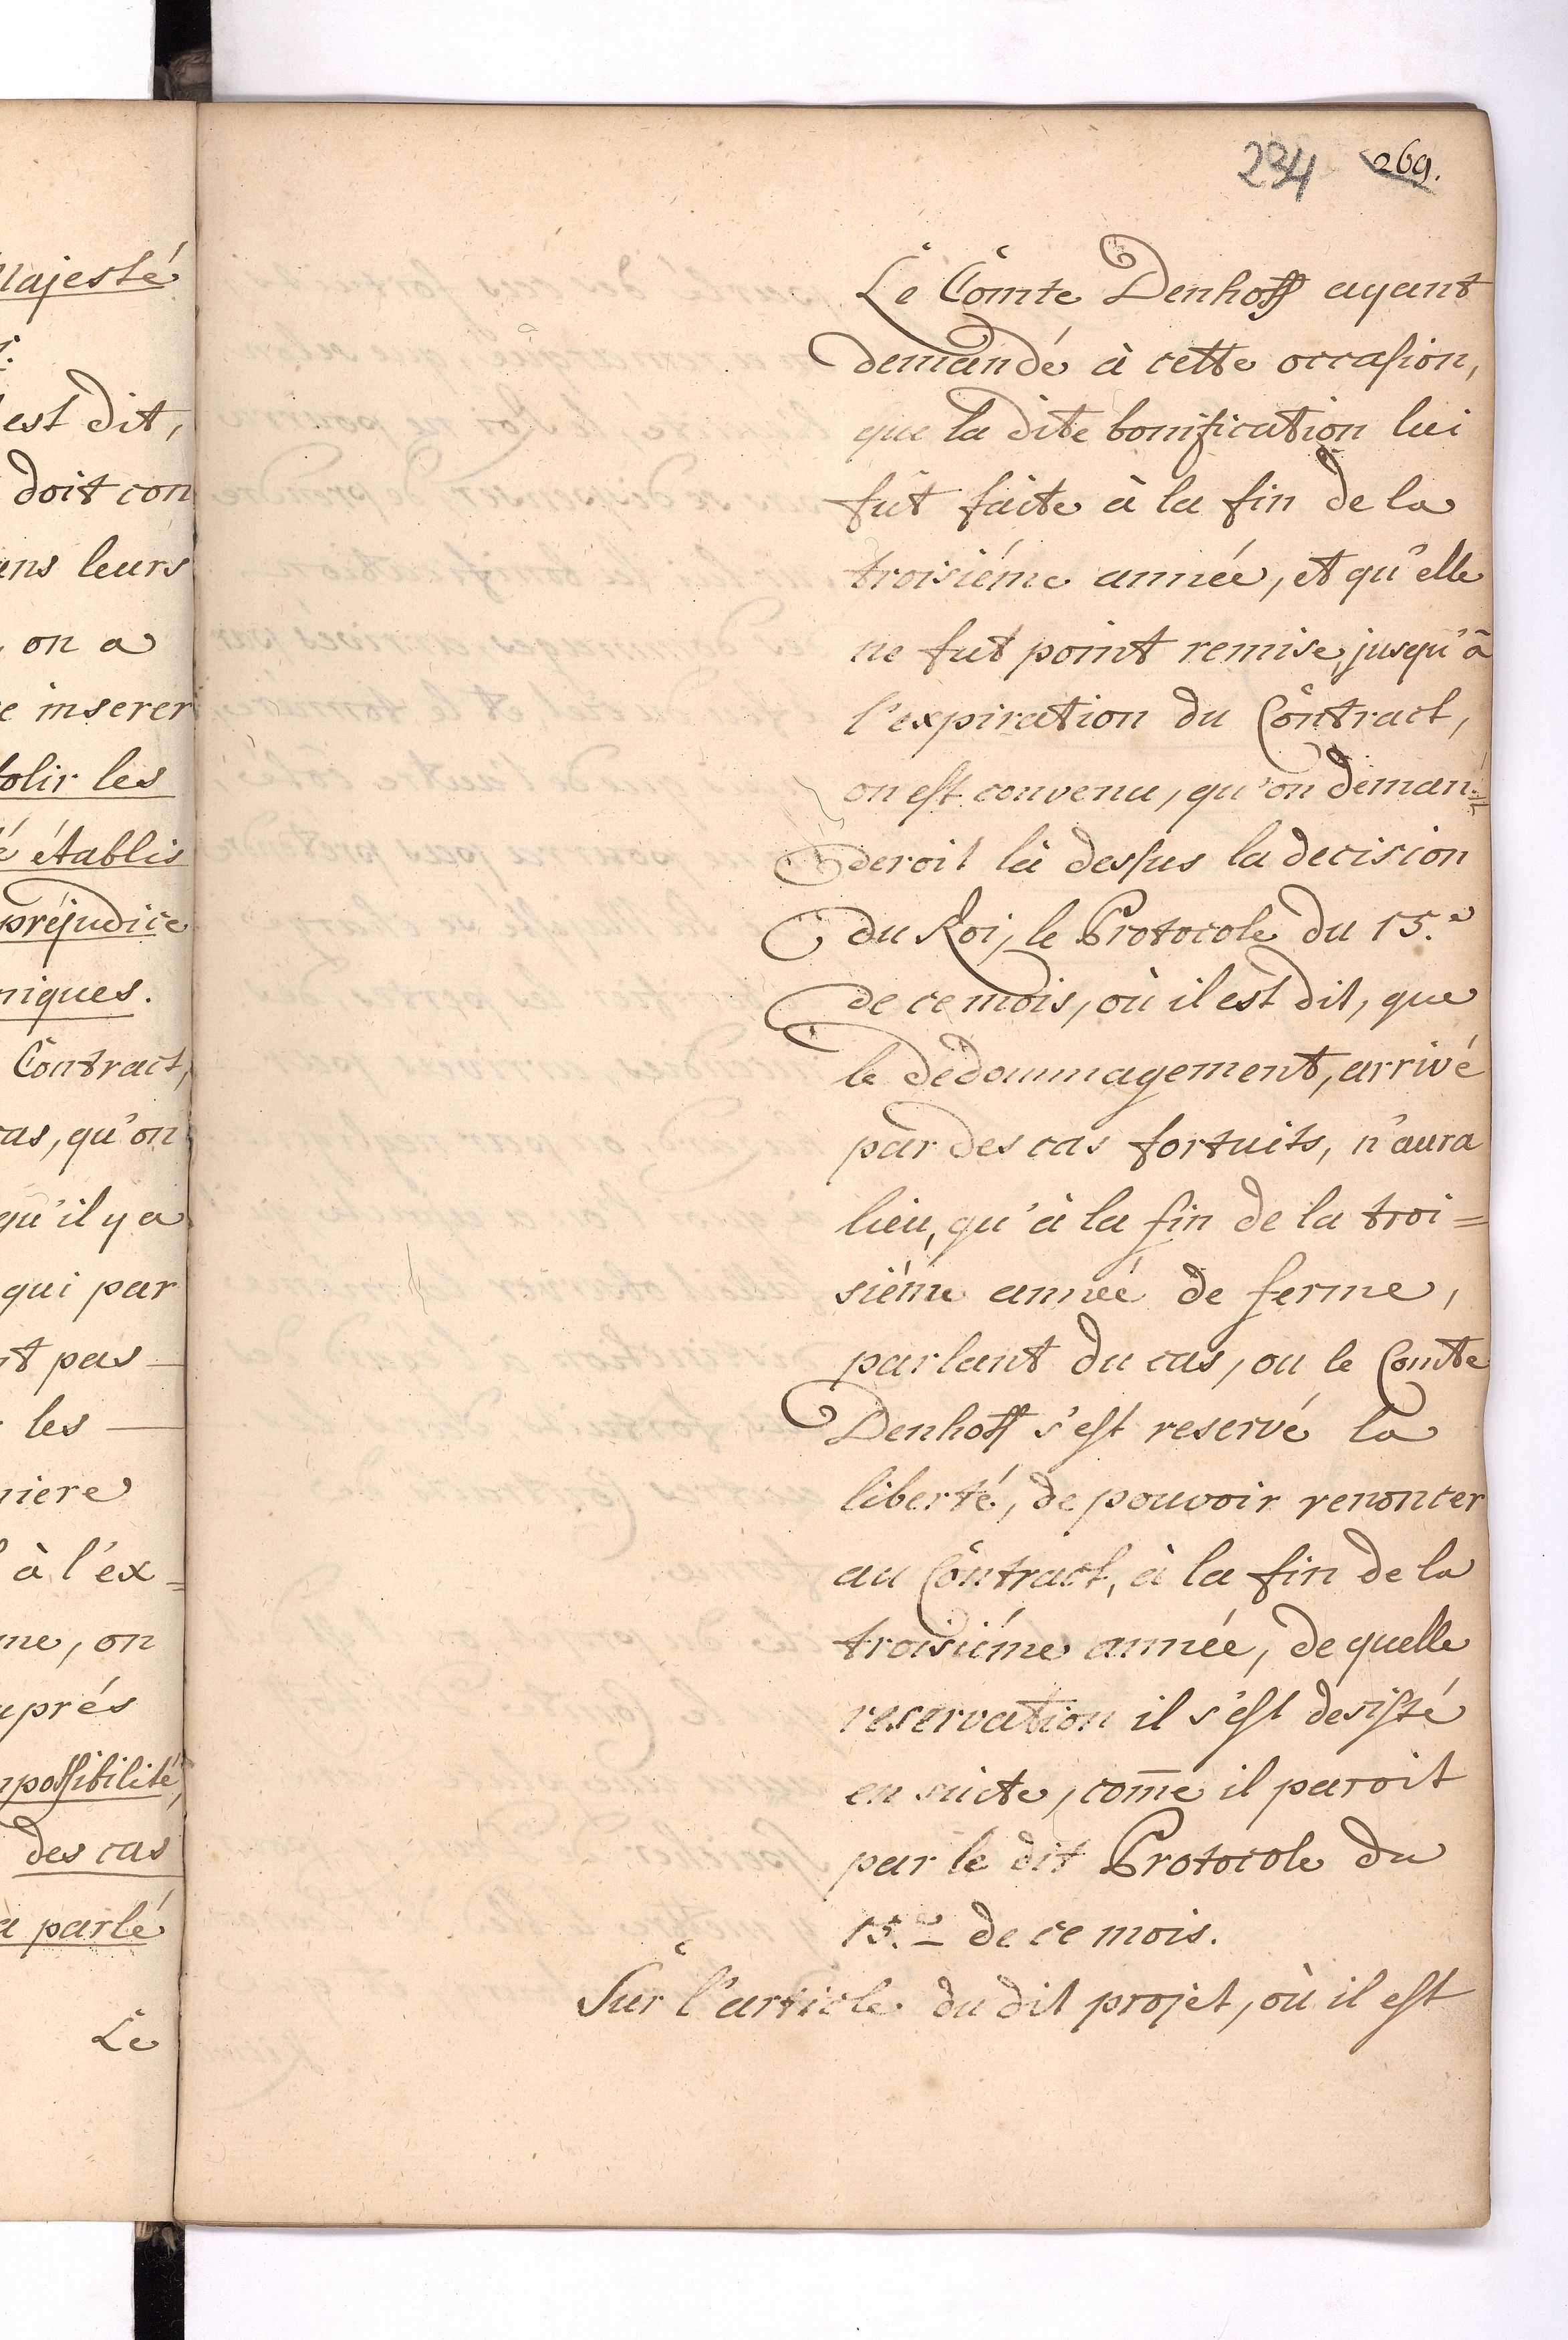 lajesté
est dit,
doit con
ans leurs
on a
e inserer
olir les
é établis
préjudice
niques.
Contract,
cas, qu'on
qu'il y a
qui par
nt pas
les
niere
à l'ex=
me, on
uprés
npossibilité,
des cas
a parlé
Le
234 269.
Le Comte Denhoff ayant
demandé à cette occasion,
que la dite bonification lui
fut faite à la fin de la
troisiéme année, et qu'elle
ne fut point remise, jusqu'à
l'expiration du Contract,
on est convenu, qu'on deman=
deroit là dessus la decision
du Roi, le Protocole du 15.e
de ce mois, où il est dit, que
le dedommagement, arrivé
par des cas fortuits, n'aura
lieu, qu'à la fin de la troi=
siéme année de ferme,
parlant du cas, ou le Comte
Denhoff s'est reservé la
liberté, de pouvoir renoncer
au Contract, à la fin de la
troisiéme année, de quelle
reservation il s'est desisté
en suite, com̄e il paroit
par le dit Protocole du
15.e de ce mois.
Sur l'article du dit projet, où il est